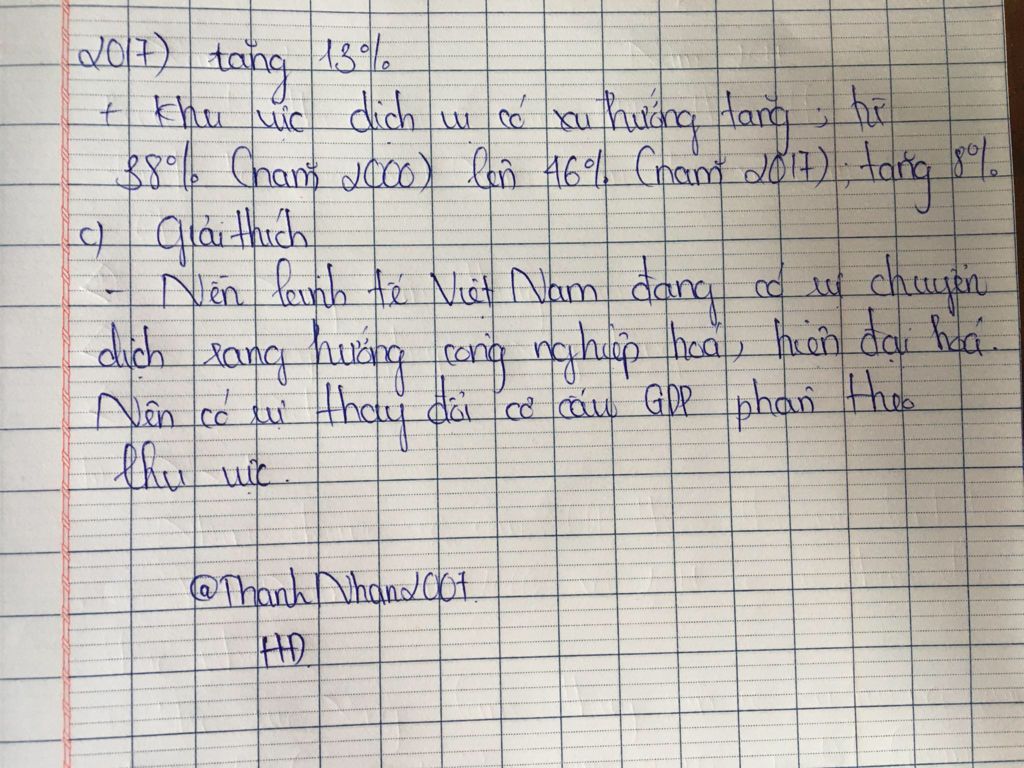 2017) tăng 13%
+ Khu vực dịch vụ có xu hướng tăng, từ
38% (năm 2000) lên 46% (năm 2017), tăng 8%.
c) Giải thích
- Nền kinh tế Việt Nam đang có sự chuyển
dịch sang hướng công nghiệp hoá, hiện đại hoá.
Nên có sự thay đổi cơ cấu GDP phân theo
khu vực.
@ThanhNhan2007.
HD